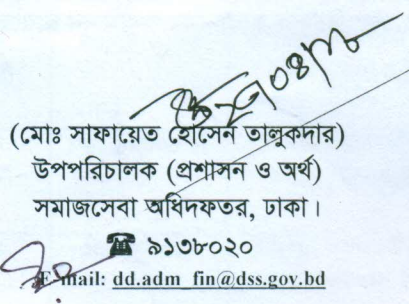 (মোঃ সাফায়েত হোসেন তালুকদার)
উপপরিচালক (প্রশাসন ও অর্থ)
সমাজসেবা অধিদফতর, ঢাকা।
☎ ৯১৩৮০২০
E-mail: dd.adm_fin@dss.gov.bd